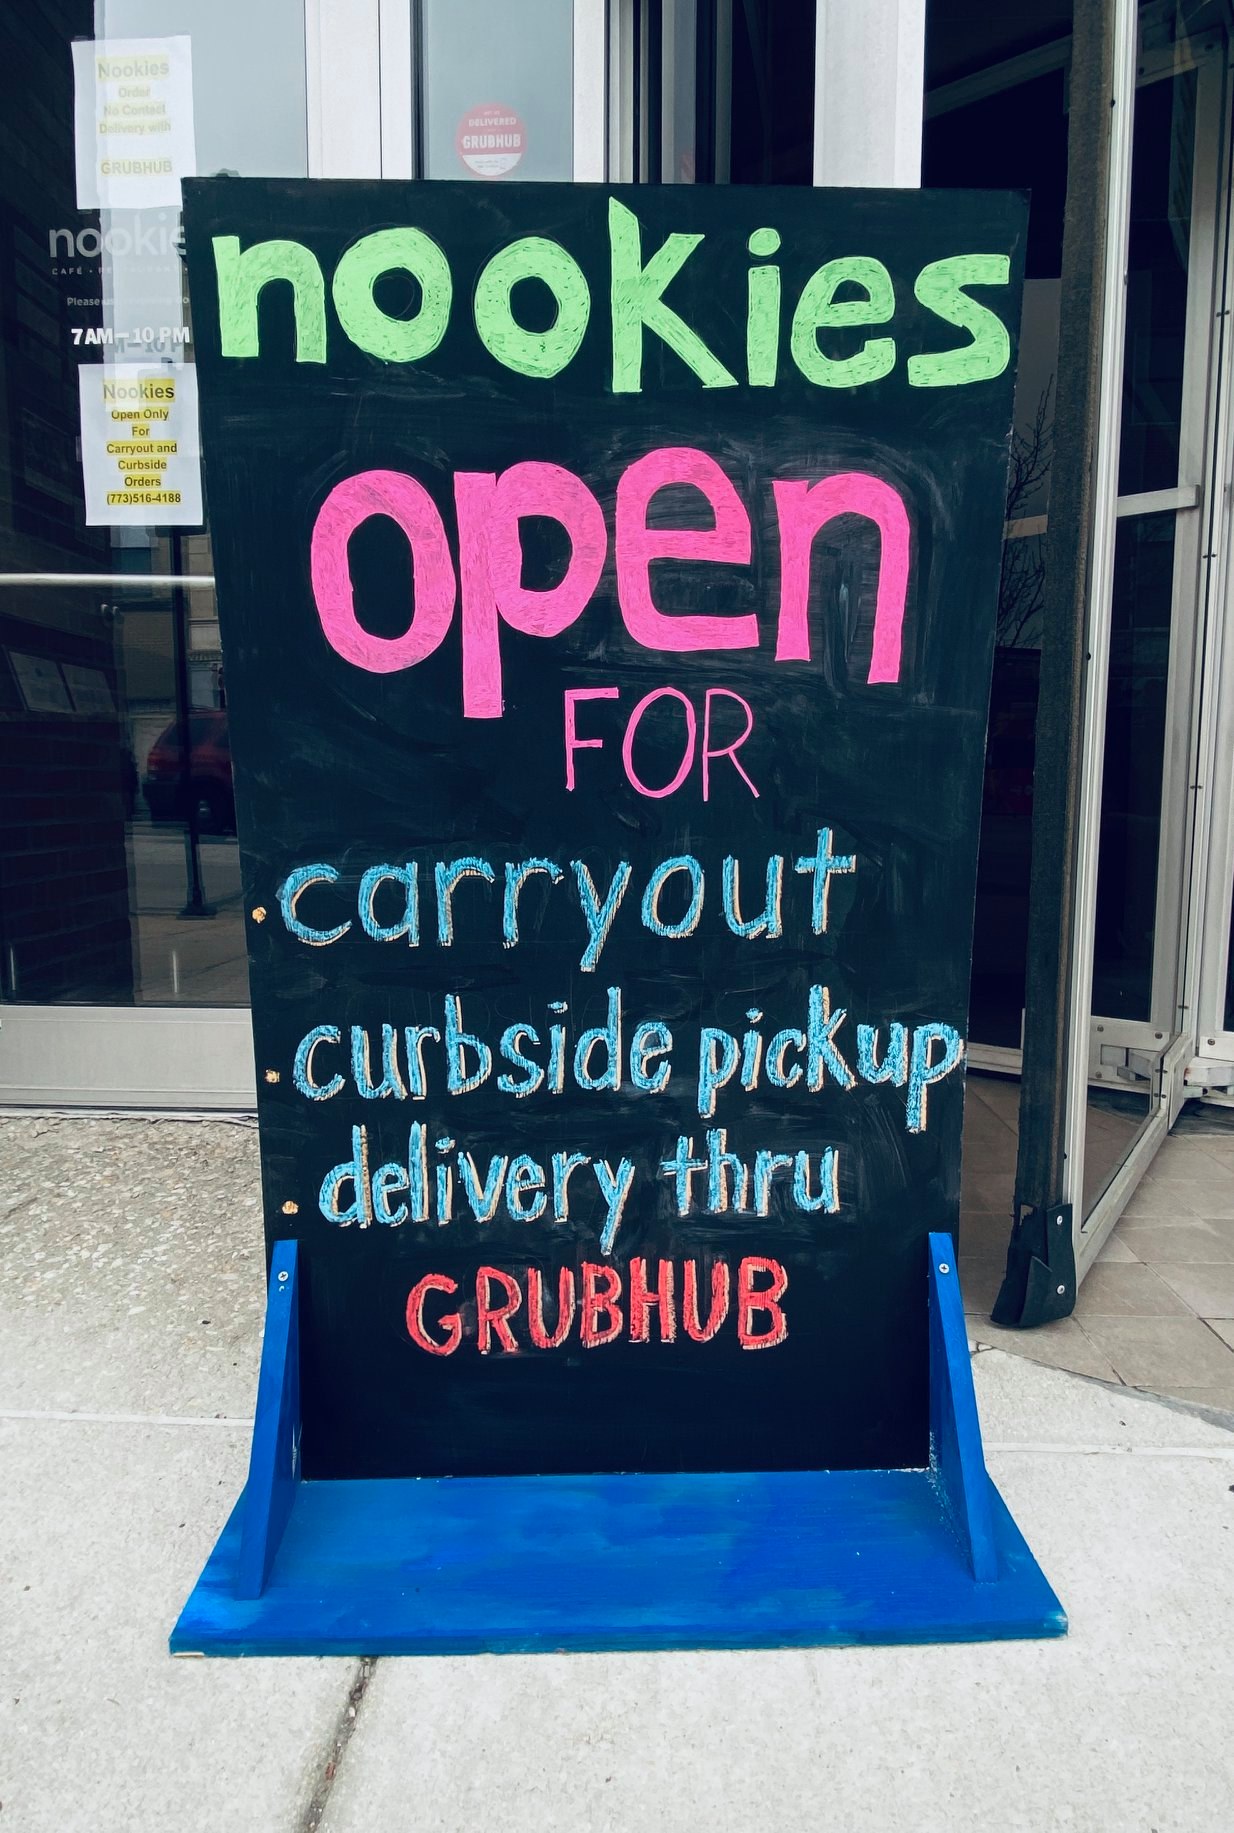 Nookies
Order
No Contact
Delivery with
GRUBHUB
DELIVERED
GRUBHUB
nookie
CAFÉ
Please
7AM–10 PM
Nookies
Open Only
For
Carryout and
Curbside
Orders
(773)516-4188
nookies
open
FOR
• carryout
• curbside pickup
• delivery thru
GRUBHUB